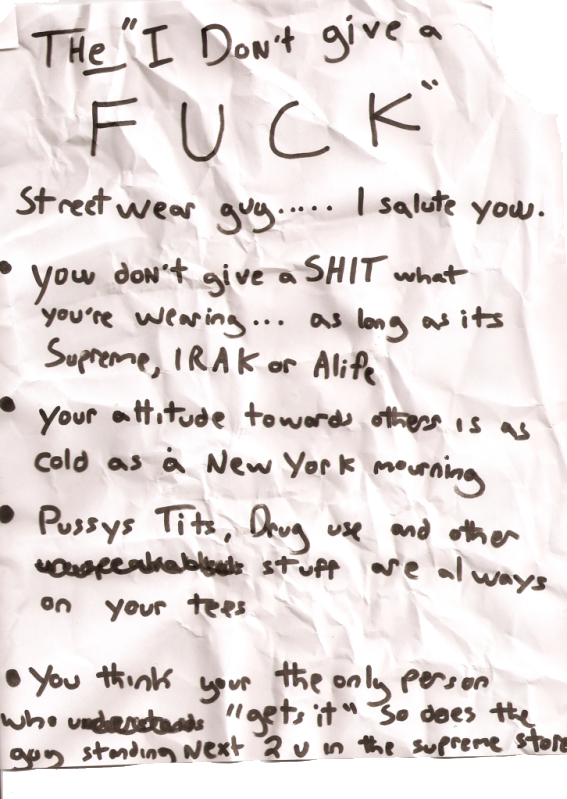 THe "I DoN't give a
FUCK"
Street wear guy..... I salute yow.
• yow doN't give a SHIT what
you're wearing... as long as its
Supreme, IRAK or Alife
• your attitude towards others is as
cold as a New York mourning
• Pussys Tits, Drug use and other
stuff are always
on your tees
• You think your the only person
who "gets it" so does the
guy standing Next 2 u in the supreme store